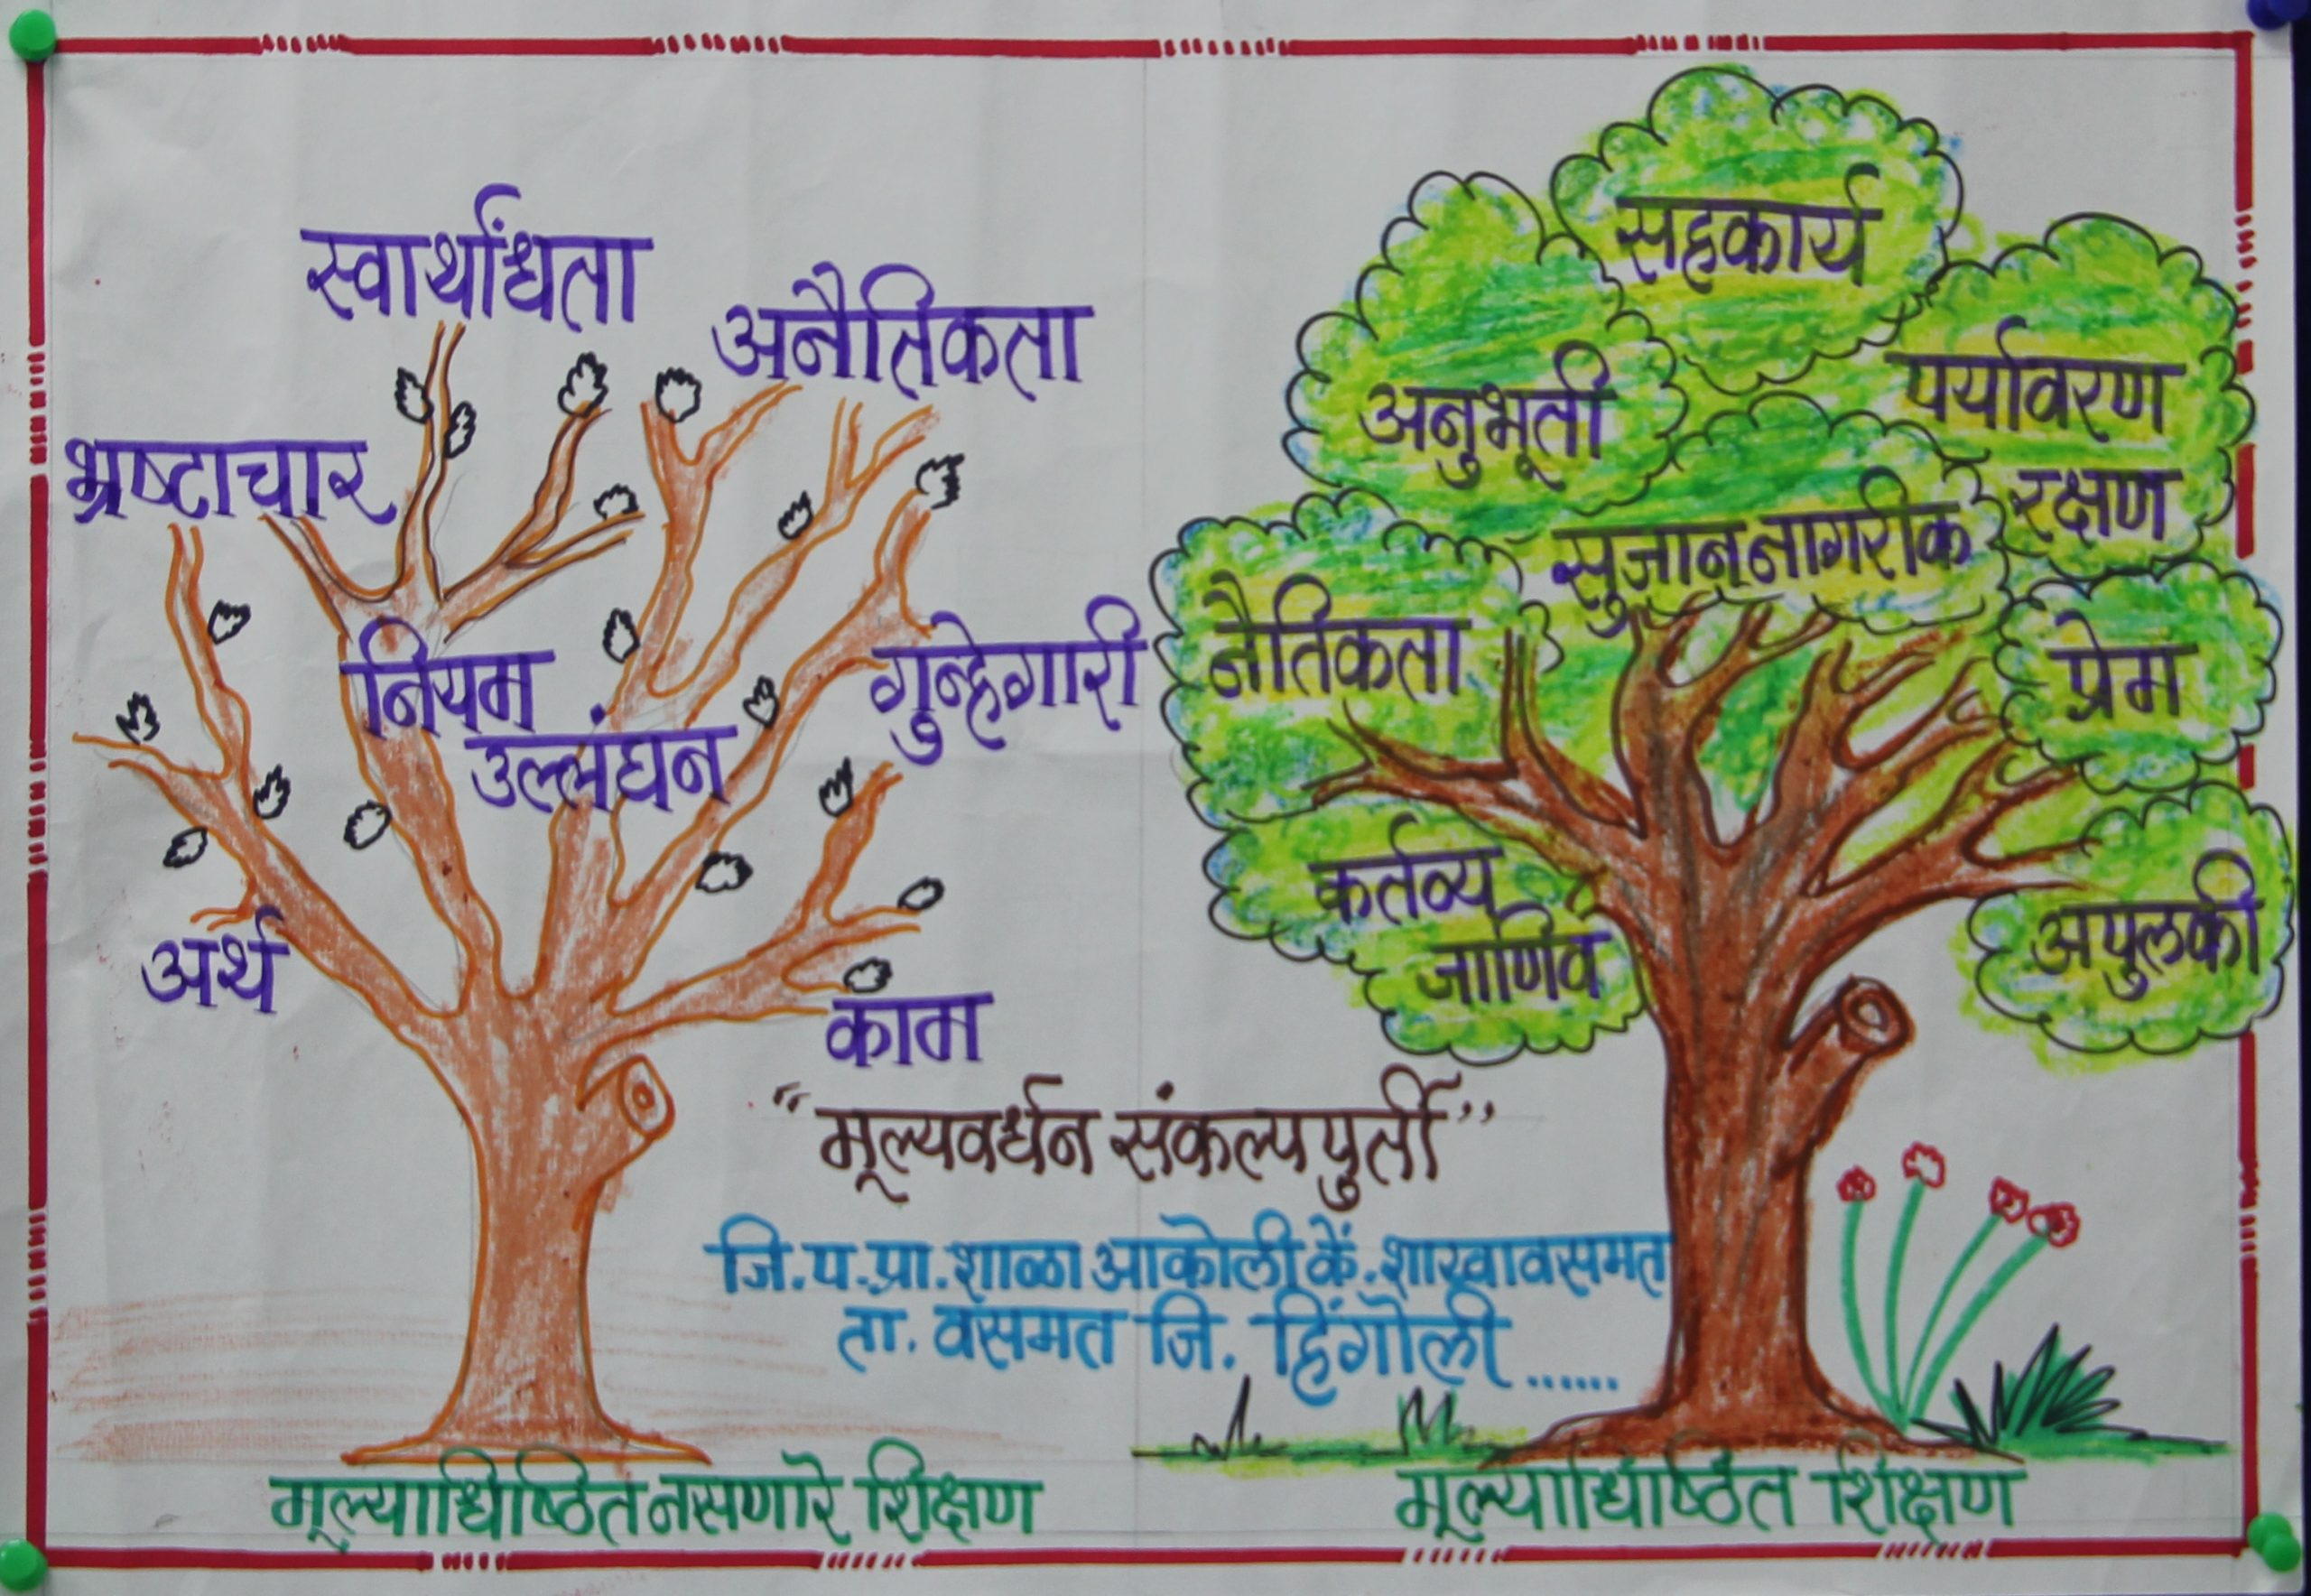 स्वार्थांधता
अनैतिकता
भ्रष्टाचार
नियम
उल्लंघन
गुन्हेगारी
अर्थ
काम
सहकार्य
अनुभूती
पर्यावरण
रक्षण
सुजान नागरीक
नैतिकता
प्रेम
कर्तव्य
जाणिव
अपुलकी
"मूल्यवर्धन संकल्पपुर्ती"
जि.प.प्रा.शाळा आकोली कें.शाखा वसमत
ता. वसमत जि. हिंगोली ......
मूल्याधिष्ठित नसणारे शिक्षण
मूल्याधिष्ठित शिक्षण